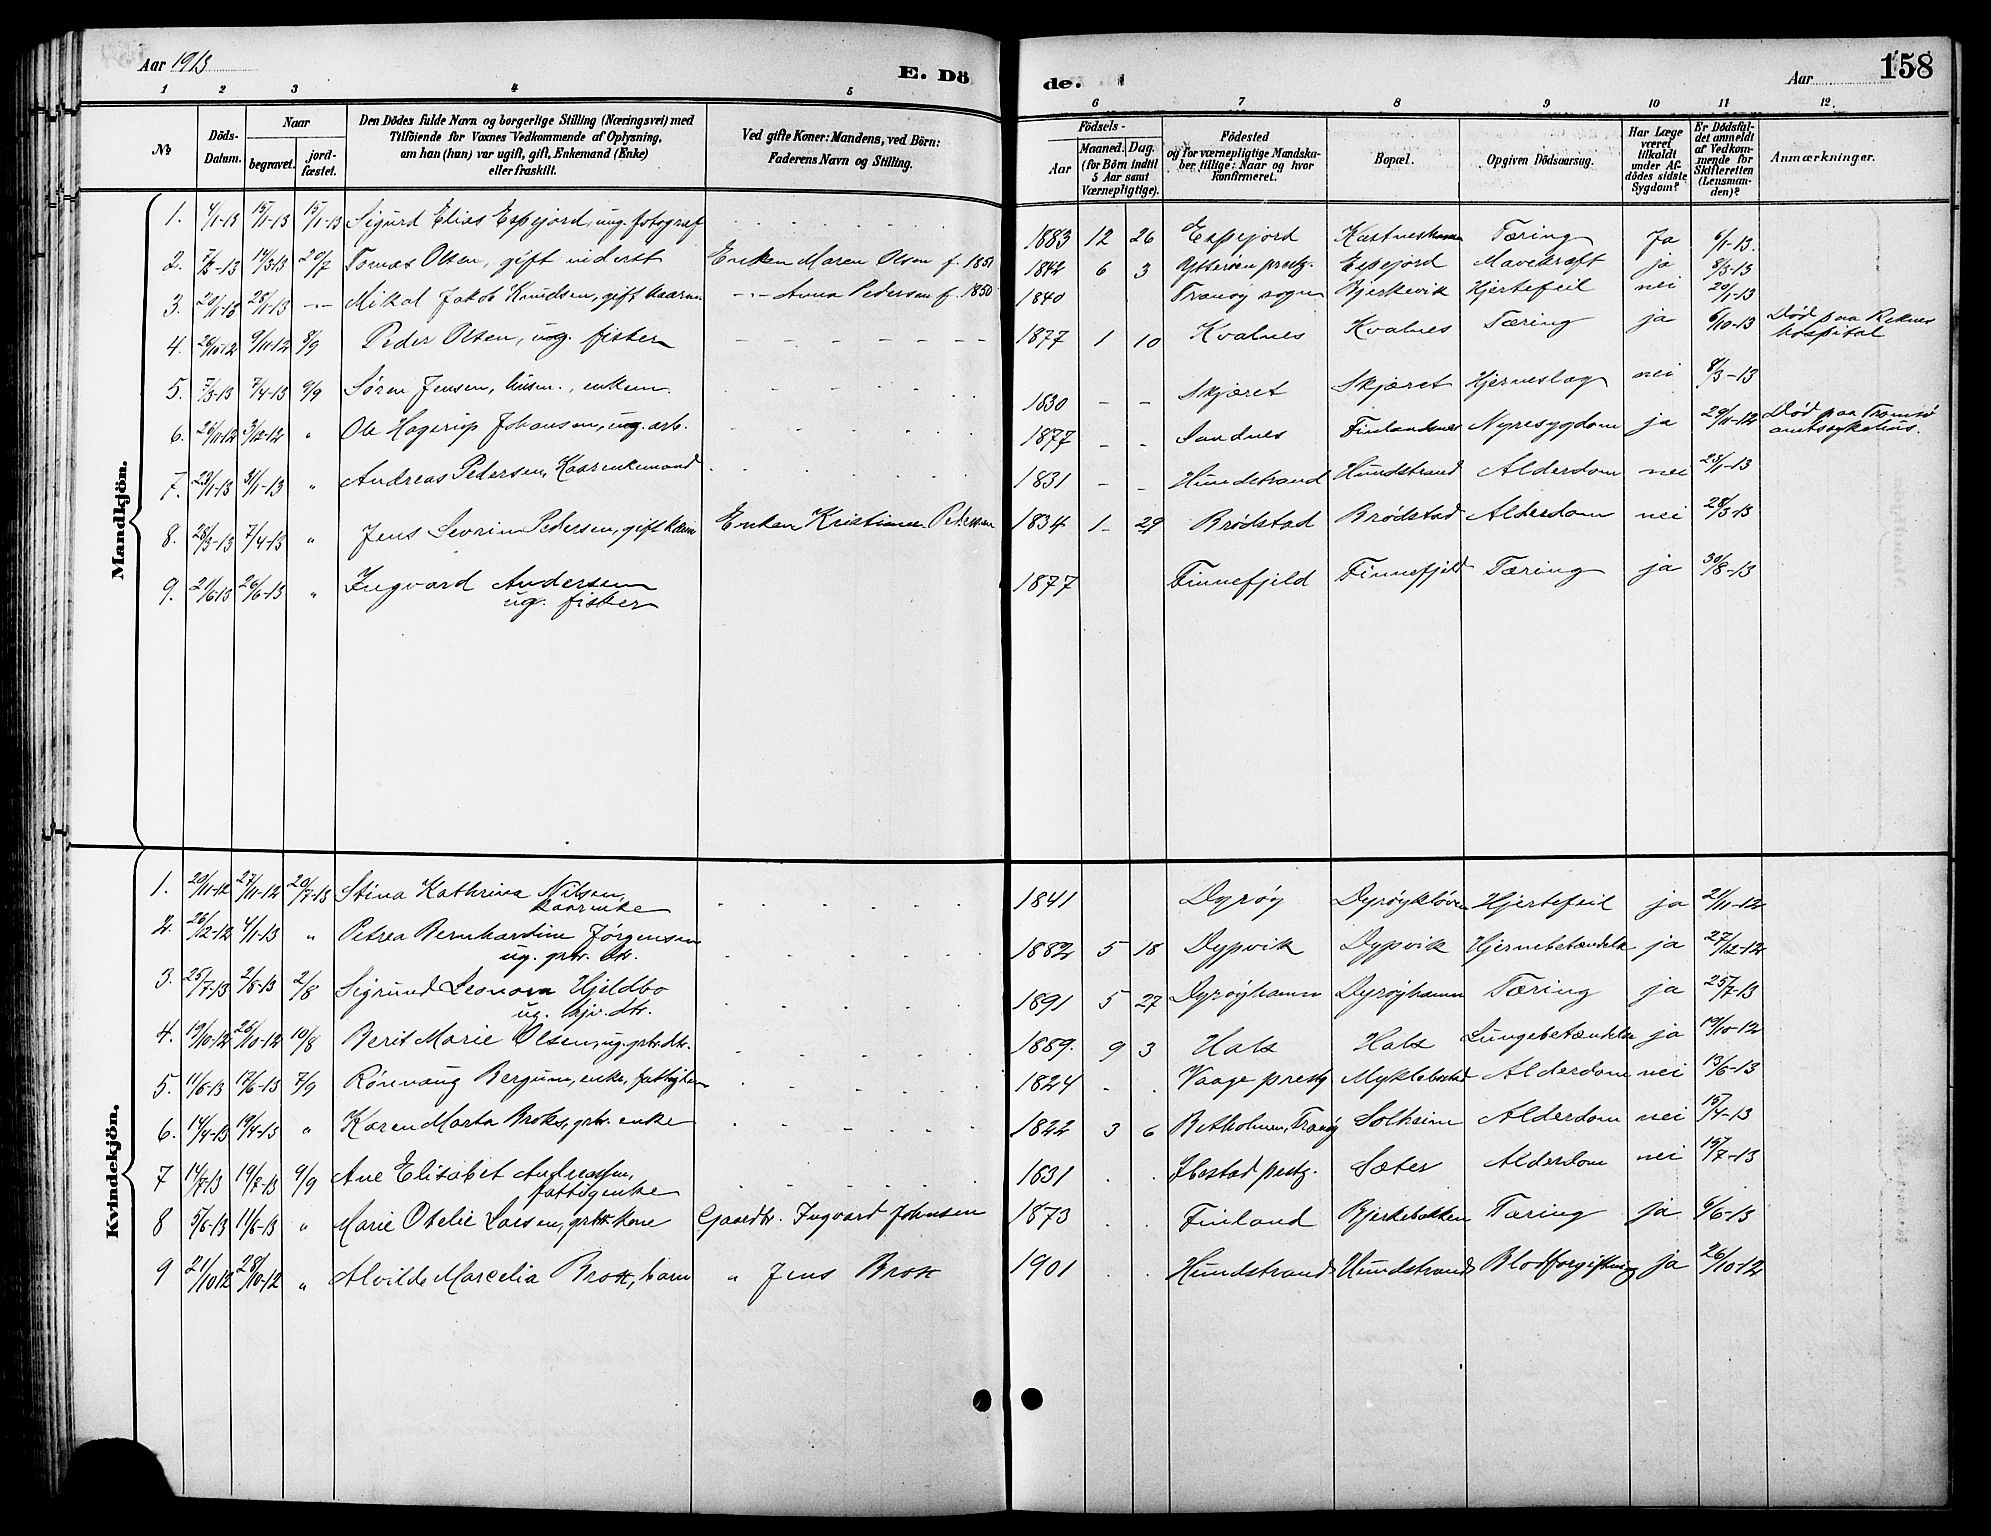 Aar 1913
E. Dö
de.
Aar
158
1 2 3 4 5 6 7 8 9 10 11 12
№
Döds-Datum.
Naar
begravet.
jord-fæstet.
Den Dödes fulde Navn og borgerlige Stilling (Næringsvei) med
Tilföiende for Voxnes Vedkommende af Oplysning,
om han (hun) var ugift, gift, Enkemand (Enke)
eller fraskilt.
Ved gifte Koner: Mandens, ved Börn:
Faderens Navn og Stilling.
Födsels-
Aar
Maaned. Dag.
(for Börn indtil
5 Aar samt
Værnepligtige).
Födested
og for værnepligtige Mandska-
ber tillige: Naar og hvor
konfirmeret.
Bopæl.
Opgiven Dödsaarsag.
Har Læge
været
tilkaldt
under Af-
dödes sidste
Sygdom?
Er Dödsfal-
det anmeldt
af Vedkom-
mende for
Skifteretten
(Lensman-
den)?
Anmærkninger.
Mandkjön.
1. 4/1-13 15/1-13 15/1-13 Sigurd Elias Espejord, ug. fotograf 1883 12 26 Espejord Kastneshamn Tæring Ja 6/1-13.
2. 7/3-13 14/3-13 20/7 Tomas Olsen, gift inderst Enken Maren Olsen f. 1851 1842 6 3 Ytterøen prestg. Espejord Mavekræft ja 8/3-13
3. 20/1-13 28/1-13 -"- Mikal Jakob Knudsen, gift kaarm -"- Anna Pedersen f. 1850 1840 Tranøy sogn Bjerkevik Hjertefeil nei 20/1-13
4. 26/10-12 9/11-12 8/9 Peder Olsen, ug. fisker 1877 1 10 Kvalnes Kvalnes Tæring ja 6/10-13 Død paa Reknes
hospital
5. 7/3-13 7/4-13 9/9 Søren Jensen, husm., enkem. 1830 - - Skjæret Skjæret Hjerneslag nei 8/3-13
6. 26/11-12 3/12-12 " Ole Hagerup Johansen, ug. arb. 1877 - - Sandnes Finlandsnes Nyresygdom ja 29/11-12 Død paa Tromsø
amtssykehus.
7. 23/1-13 31/1-13 " Andreas Pedersen, Kaarenkemand 1831 - - Hundstrand Hundstrand Alderdom nei 23/1-13
8. 28/3-13 7/4-13 " Jens Sevrin Pedersen, gift kaarm Enken Kristianna Pedersen 1834 1 29 Brödstad Brödstad Alderdom nei 28/3-13
9. 21/6-13 26/6-13 " Ingvard Andersen 1877 Finnefjeld Finnefjeld Tæring ja 30/8-13
ug. fisker
Kvindekjön.
1. 20/11-12 27/11-12 20/7-13 Stina Kathrina Nilsen, 1841 Dyrøy Dyrøykløven Hjertefeil ja 21/11-12
kaarenke
2. 26/12-12 4/1-13 " Petrea Bernhardine Jørgensen 1882 5 18 Dypvik Dypvik Hjernebetændelse ja 27/12-12
ug. grbr. dtr.
3. 25/7-13 2/8-13 2/8 Sigrund Leonora Hjeldbo 1891 5 27 Dyrøyhamn Dyrøyhamn Tæring ja 25/7-13
ug. hjv. dtr.
4. 19/10-12 26/10-12 10/8 Berit Marie Olsen, ug. grbr. dtr. 1889. 9 3 Hals Hals Lungebetændelse ja 19/10-12
5. 11/6-13 17/6-13 7/9 Rønnaug Bergum, enke, fattiglem 1824 Vaage prestg Myklebostad Alderdom nei 13/6-13
6. 14/4-13 19/4-13 " Karen Marta Broks, grbr. enke 1822 3 6 Betholmen, Tranøy Solheim Alderdom nei 15/4-13
7 14/7-13 19/7-13 9/9 Ane Elisabet Andreassen, 1831 Ibestad prestg. Sæter Alderdom nei 15/7-13
fattigenke
8 5/6-13 11/6-13 " Marie Otelie Larsen, grbr. kone Gaardbr. Ingvard Johnsen 1873 Finland Bjerkebakken Tæring ja 6/6-13
9 21/10-12 28/10-12 " Alvilde Marcelia Brox, barn " Jens Brox 1901 Hundstrand Hundstrand Blodforgiftning ja 26/10-12